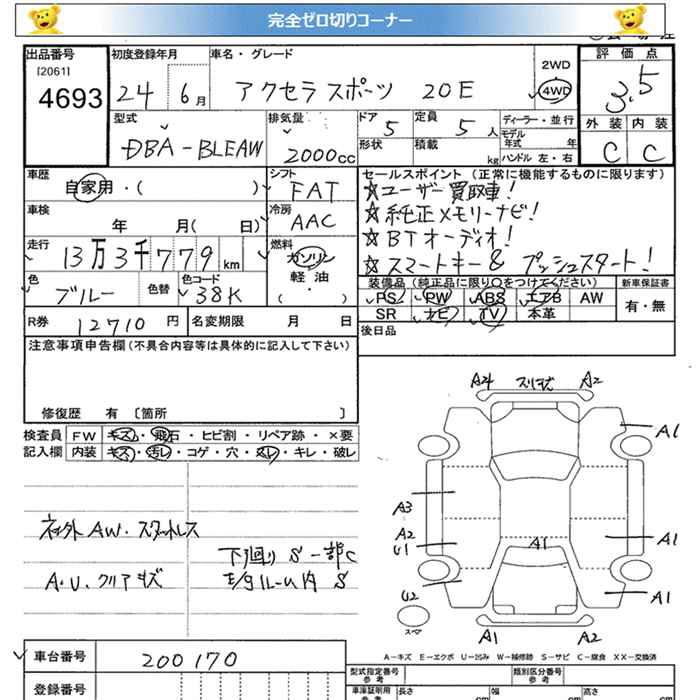 完全ゼロ切りコーナー
出品番号
[2061]
4693
初度登録年月
24 6月
車名・グレード
アクセラスポーツ 20E
2WD
4WD
評価点
3.5
外装 内装
C C
型式
DBA-BLEAW
排気量
2000cc
ドア 5
定員 5人
形状
積載 kg
ディーラー・並行
モデル年式 年
ハンドル 左・右
車歴
自家用・( )
シフト
FAT
車検
年 月( 日)
冷房
AAC
走行
13万3千779km
燃料
ガソリン
軽油
( ・ )
色
ブルー
色替
色コード
38K
セールスポイント (正常に機能するものに限ります)
☆ユーザー買取車!
☆純正メモリーナビ!
☆BTオーディオ!
☆スマートキー & プッシュスタート!
装備品 (純正品に限り○をつけてください)
新車保証書
PS PW ABS エアB AW
有・無
SR ナビ TV 本革
後日品
R券 12710円
名変期限 月 日
注意事項申告欄(不具合内容等は具体的に記入して下さい)
修復歴 有 〔箇所 〕
検査員
記入欄
FW キズ・飛石・ヒビ割・リペア跡・×要
内装 キズ・汚レ・コゲ・穴・スレ・キレ・破レ
社外AW・スタッドレス
A・U、クリアキズ
下廻り S 一部C
E/gルーム内 S
A4
A2
A1
A3
A2
U1
A1
A1
U2
A1
スペア
A1
A2
A-キズ E-エクボ U-凹み W-補修跡 S-サビ C-腐食 XX-交換済
車台番号
200170
登録番号
型式指定番号
参考
類別区分番号
参考
車庫証明用
参考
長さ cm
幅 cm
高さ cm